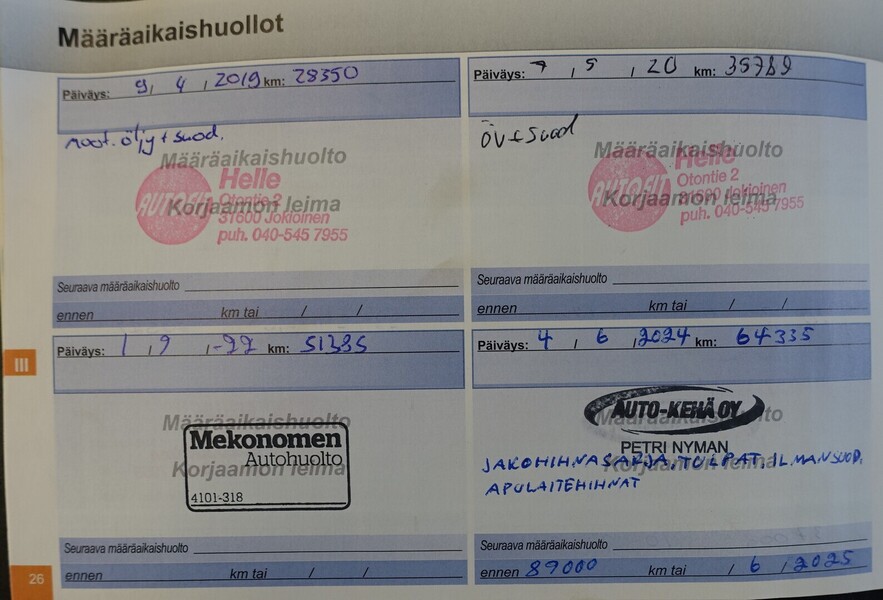 Määräaikaishuollot
Päiväys: 9, 4, 2019 km: 28350
moot. öljy + suod.
Määräaikaishuolto
Korjaamon leima
AUTOSIT
Helle
Otontie 2
31600 Jokioinen
puh. 040-545 7955
Seuraava määräaikaishuolto
ennen km tai / /
Päiväys: 7 , 5 , 20 km: 35789
ÖV + Suod
Määräaikaishuolto
Korjaamon leima
AUTOSIT
Helle
Otontie 2
31600 Jokioinen
puh. 040-545 7955
Seuraava määräaikaishuolto
ennen km tai / /
Päiväys: 1 , 9 , -22 km: 51385
Määräaikaishuolto
Korjaamon leima
Mekonomen
Autohuolto
4101-318
Seuraava määräaikaishuolto
ennen km tai / /
Päiväys: 4 , 6 , 2024 km: 64335
Määräaikaishuolto
Korjaamon leima
AUTO-KEHÄ OY
PETRI NYMAN
JAKOHIHNASARJA, TULPAT, ILMANSUOD,
APULAITEHIHNAT
Seuraava määräaikaishuolto
ennen 89000 km tai / 6 / 2025
III
26